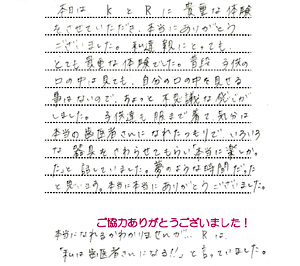 本日は KとRに 貴重な体験
をさせていただき、本当にありがとう
ございました。私達親にとっても
とても貴重な体験でした。普段 子供の
口の中は見ても、自分の口の中を見せる
事はないので、ちょっと不思議な感じが
しました。子供達も 服まで着て気分は
本当の歯医者さんになれたつもりで いろいろ
な 器具をさわらせてもらい「本当に楽しかっ
た」と話していました。夢のような時間だった
と思います。本当に本当に ありがとうございました。
ご協力ありがとうございました！
本当になれるかわかりませんが… Rは、
「私は歯医者さんになる!!」と言っていました。